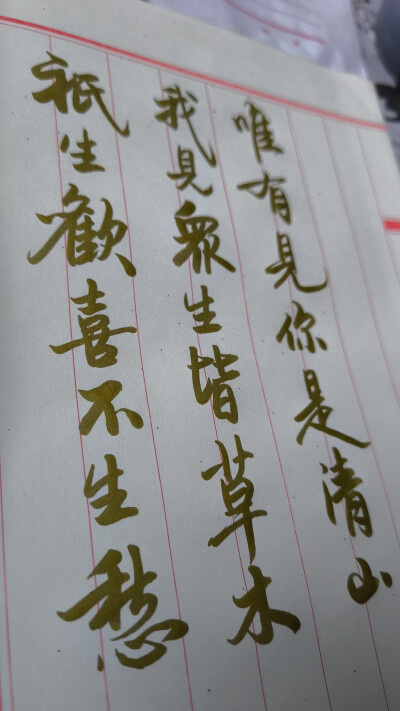 祇生歡喜不生愁
我見眾生皆草木
唯有見你是清山